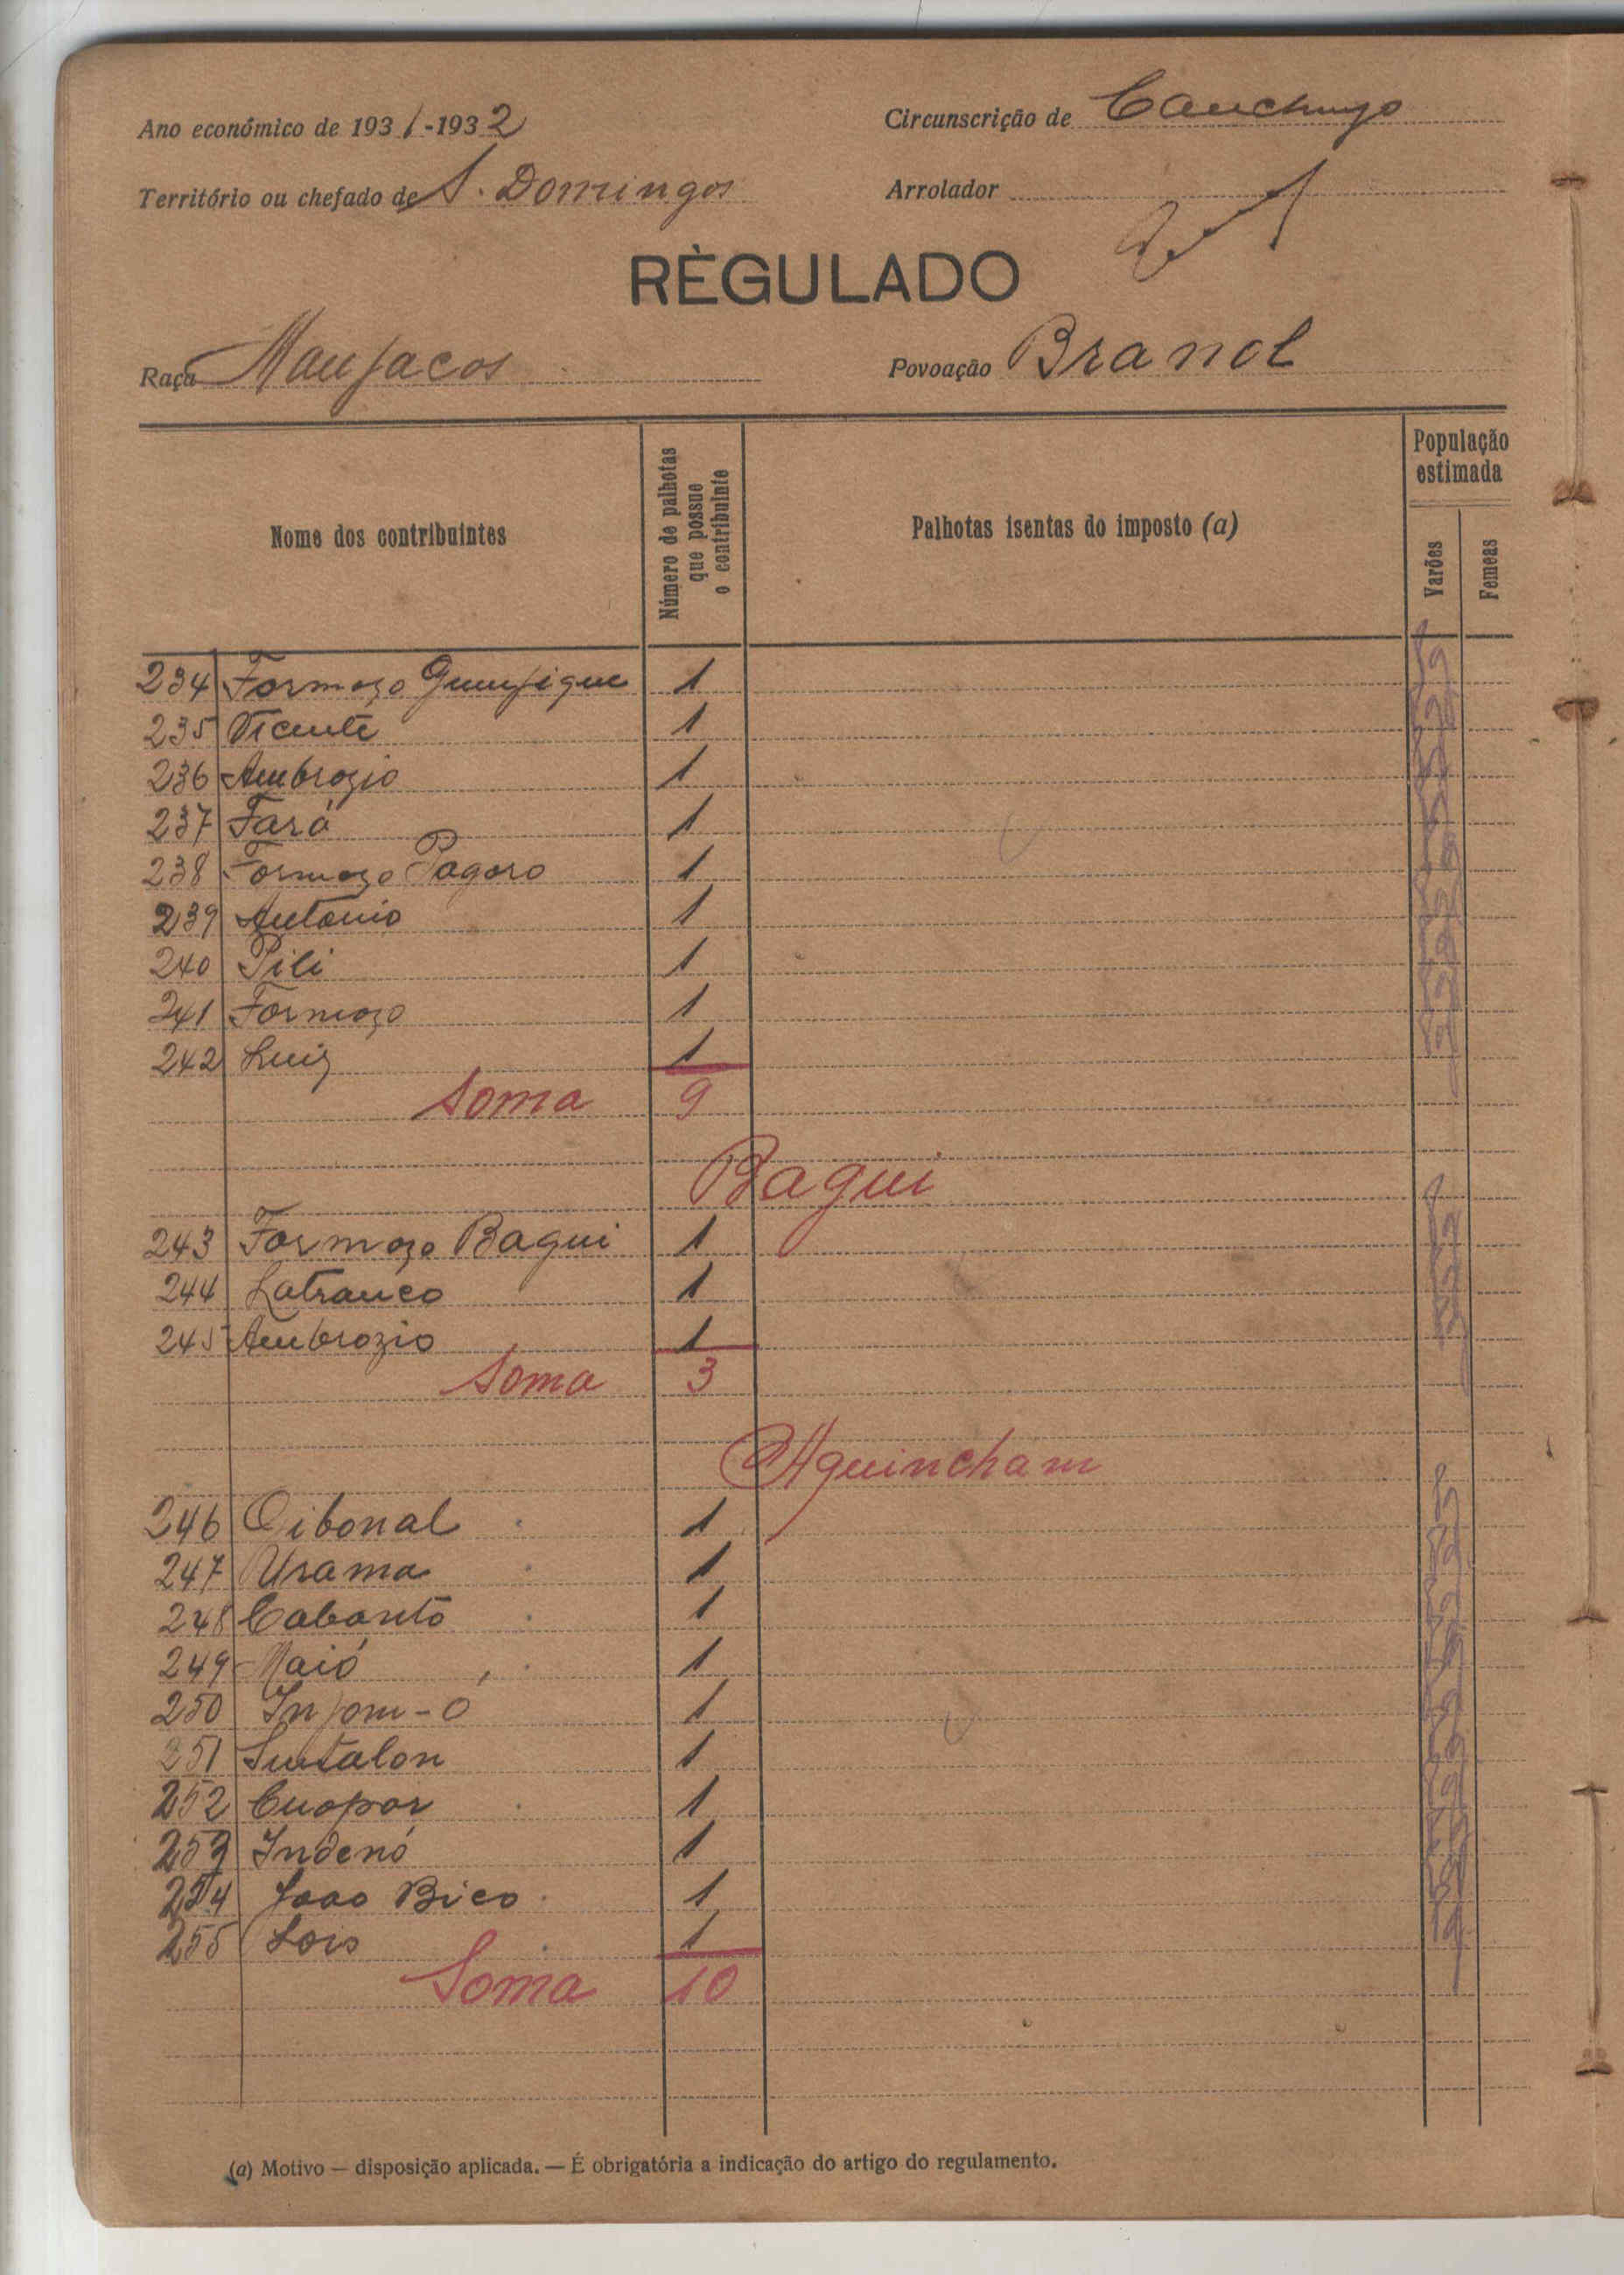 Ano económico de 1931-1932
Circunscrição de Canchungo
Território ou chefado de S. Domingos
Arrolador
RÈGULADO
Raça Manjacos
Povoação Branol
Nome dos contribuintes
Número de palhotas que possue o contribuinte
Palhotas isentas do imposto (a)
População estimada
Varões
Femeas
234 Formozo 1
235 Vicente 1
236 Ambrozio 1
237 Fará 1
238 Formozo Pagoro 1
239 Antonio 1
240 Pili 1
241 Formozo 1
242 Luiz 1
Soma 9
Bagui
243 Formozo Bagui 1
244 Latranco 1
245 Ambrozio 1
Soma 3
Aguincham
246 Oibonal 1
247 Urama 1
248 1
249 Naió 1
250 Injom-O 1
251 1
252 Cuopor 1
253 Indenó 1
254 Joao Bico 1
255 Lois 1
Soma 10
(a) Motivo — disposição aplicada. — É obrigatória a indicação do artigo do regulamento.